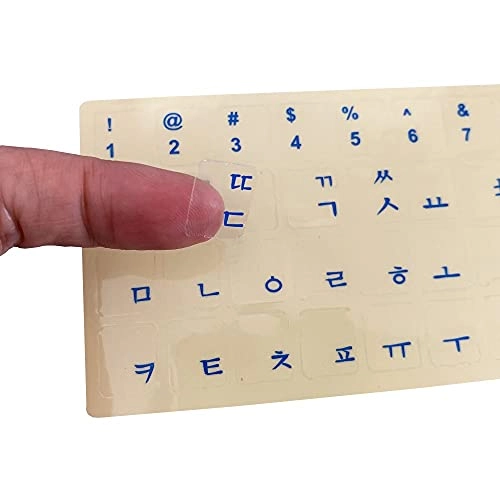 ! @ # $ % ^ &
1 2 3 4 5 6 7
ㄸ ㄲ ㅆ
ㄷ ㄱ ㅅ ㅛ
ㅁ ㄴ ㅇ ㄹ ㅎ ㅗ
ㅋ ㅌ ㅊ ㅍ ㅠ ㅜ